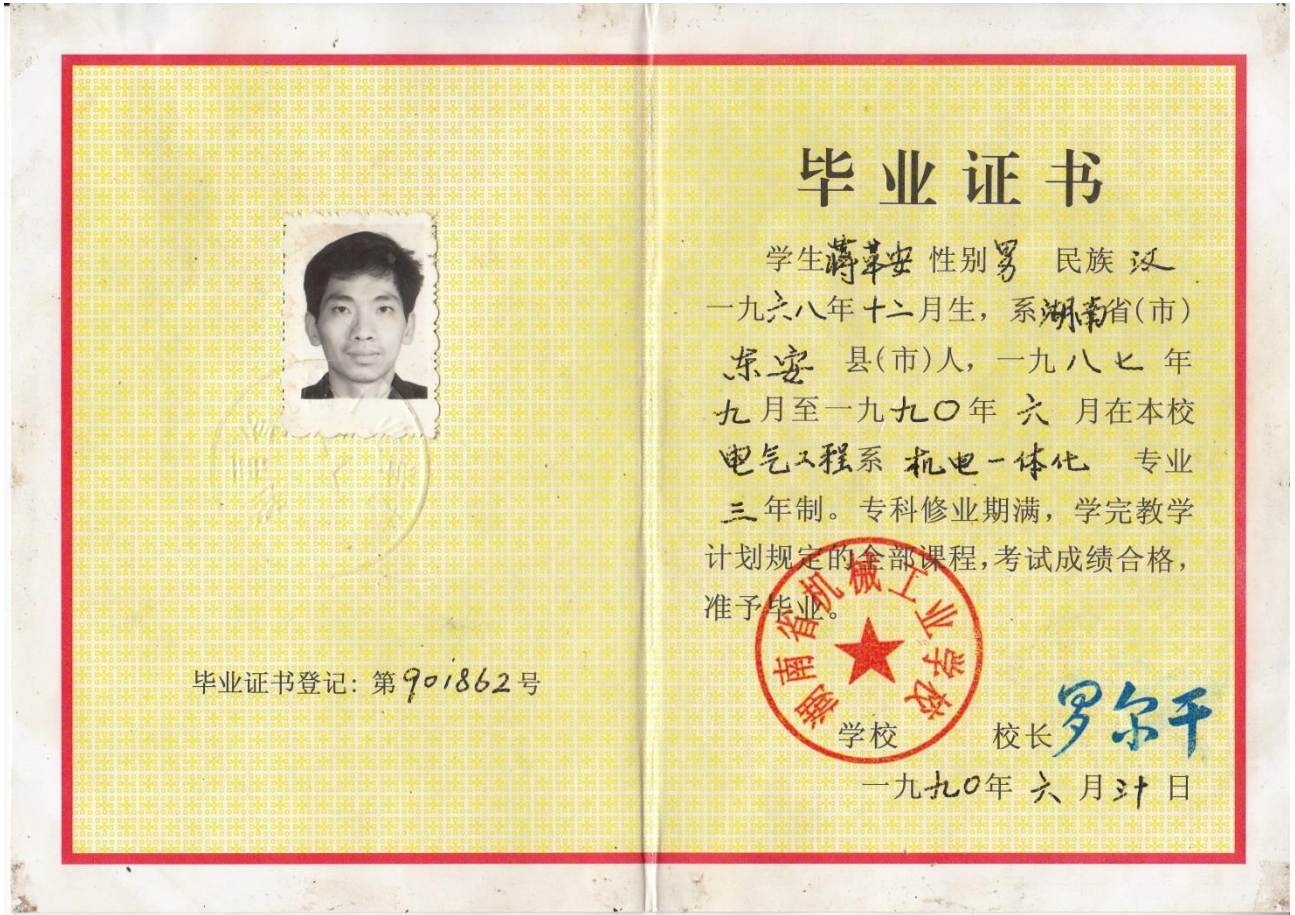 毕业证书登记: 第901862号
毕业证书
学生蒋革安 性别男 民族汉
一九六八年十二月生，系湖南省(市)
东安 县(市)人，一九八七年
九月至一九九〇年 六 月在本校
电气工程系 机电一体化 专业
三年制。专科修业期满，学完教学
计划规定的全部课程，考试成绩合格，
准予毕业。
湖南省机械工业学校
学校 校长罗尔干
一九九〇年 六 月三十日